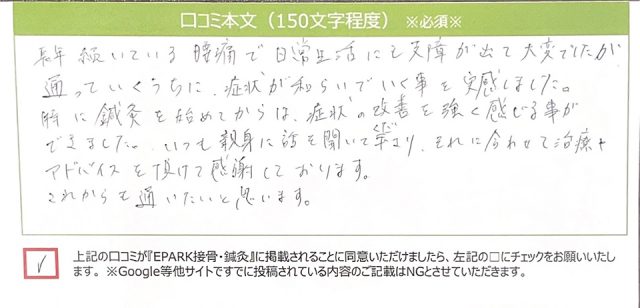 口コミ本文（150文字程度）　※必須※
長年続いている腰痛で日常生活にも支障が出て大変でしたが
通っていくうちに、症状が和らいでいく事を実感しました。
特に鍼灸を始めてからは、症状の改善を強く感じる事が
できました。いつも親身に話を聞いて下さり、それに合わせて治療や
アドバイスを頂けて感謝しております。
これからも通いたいと思います。
✓
上記の口コミが『EPARK接骨・鍼灸』に掲載されることに同意いただけましたら、左記の□にチェックをお願いいたし
ます。※Google等他サイトですでに投稿されている内容のご記載はNGとさせていただきます。